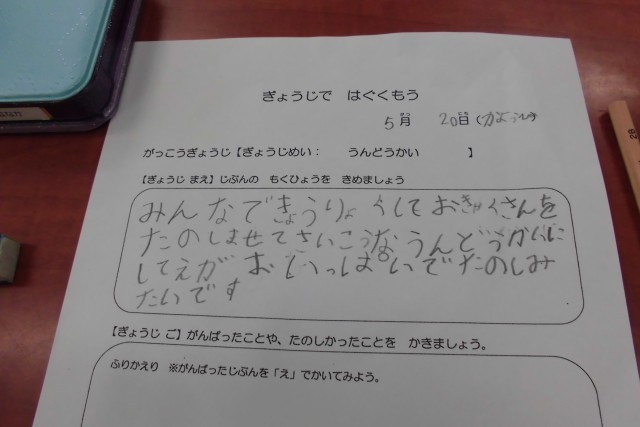 ぎょうじで はぐくもう
5月 20日（かようび）
がっこうぎょうじ【ぎょうじめい： うんどうかい 】
【ぎょうじ まえ】じぶんの もくひょうを きめましょう
みんなできょうりょくして おきゃくさんを
たのしませてさいこうなうんどうかいに
してえがおいっぱいでたのしみ
たいです
【ぎょうじ ご】がんばったことや、たのしかったことを かきましょう。
ふりかえり ※がんばったじぶんを「え」でかいてみよう。
2B